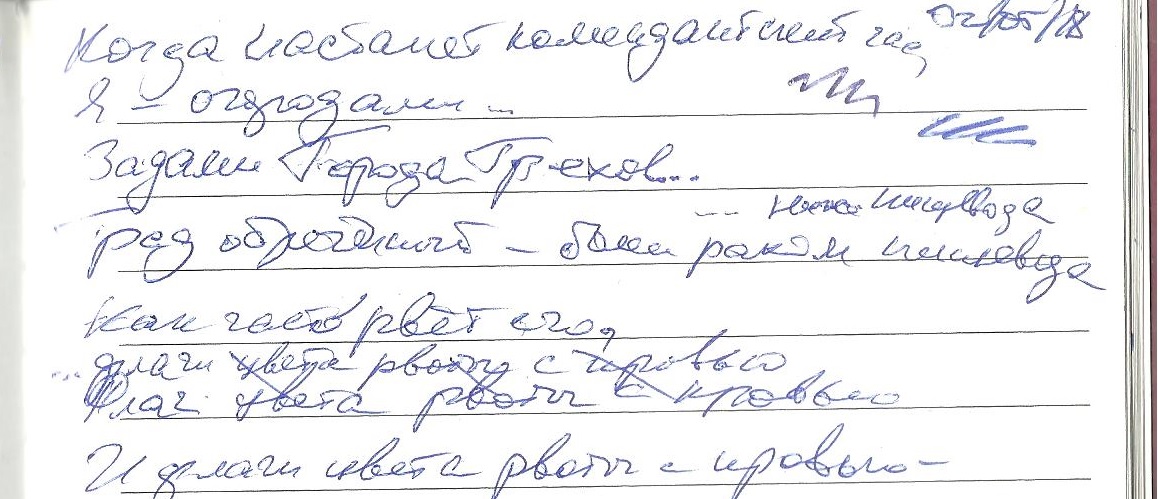 Когда настанет комендантский час
Я – огородами...
Задами Города Грехов...
... пищевода
Рад обречённый – болен раком пищевода
Как часто рвёт его,
... флаги цвета рвоты с кровью
Флаг цвета рвоты с кровью
И флаги цвета рвоты с кровью –